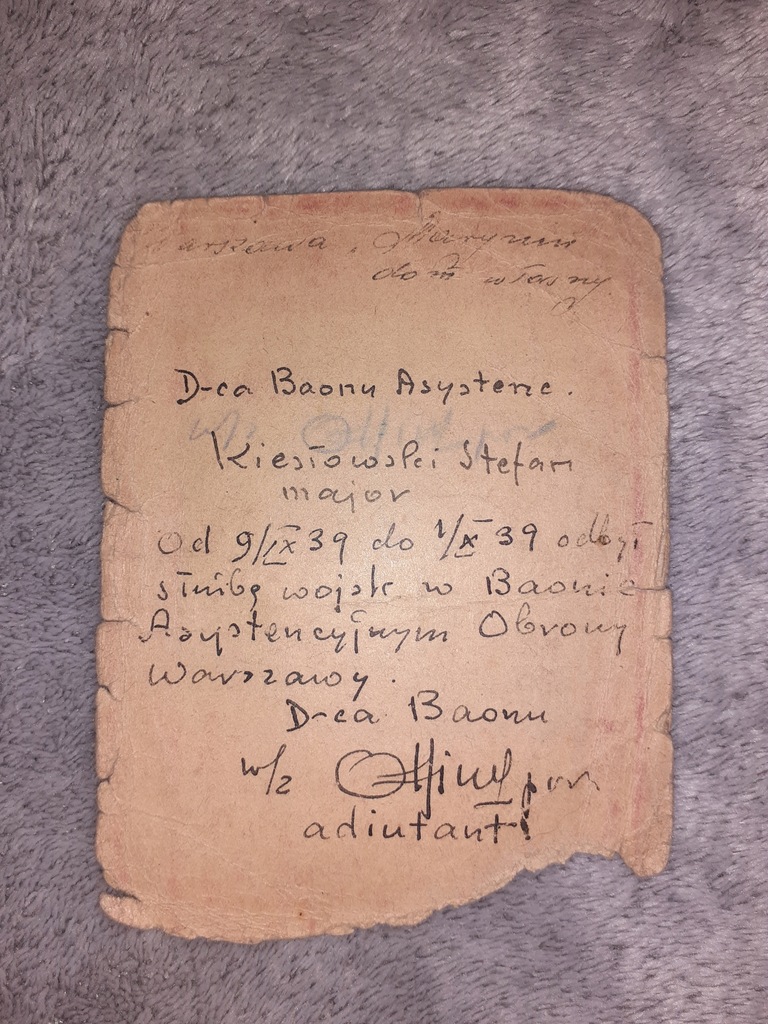 Warszawa, Marynin
dom własny
D-ca Baonu Asystenc.
Kiesłowski Stefan
major
Od 9/IX 39 do 1/X 39 odbył
służbę wojsk w Baonie
Asystencyjnym Obrony
Warszawy.
D-ca Baonu
w/z
adiutant!